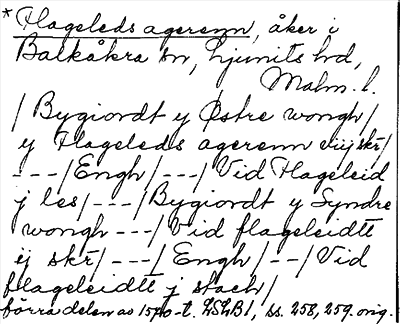 * Flageleds agerenn, åker i
Balkåkra sn, Ljunits hd,
Malm. l.
/ Bygiordt y Østre wongh /
y Flageleds agerenn viij skr̃/
---/ Engh /---/ Vid Flageleid
j les /---/ Bygiordt y Syndre
wongh ---/ Vid flageleidtt
ij skr̃/---/ Engh /--/ Vid
flageleidtt j stach /
förra delen av 1570-t. LSLB1, ss. 258, 259. orig.